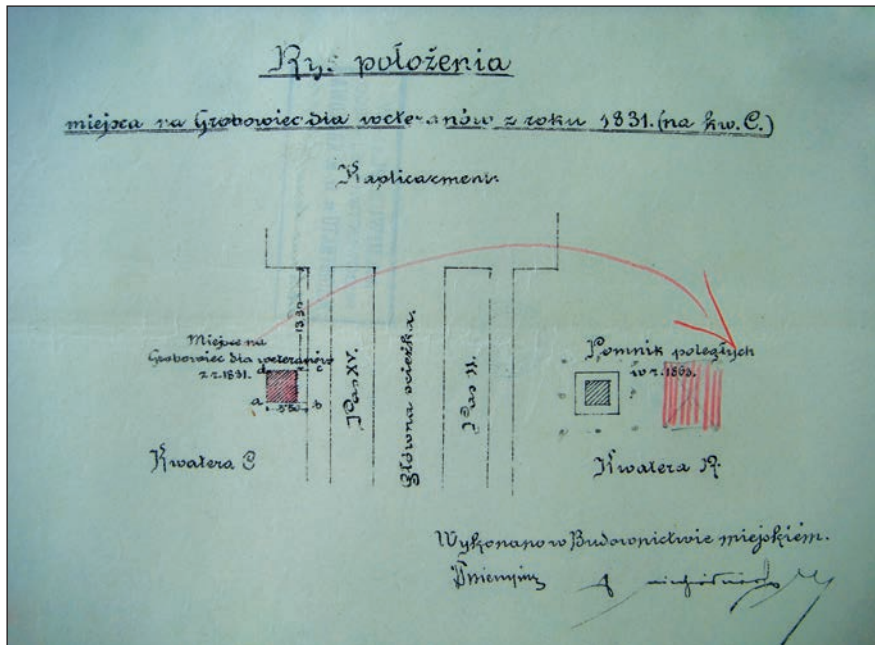 Rys położenia
miejsca na Grobowiec dla weteranów z roku 1831. (na kw. C.)
Kaplica cment.
13.30
Miejsce na
Grobowiec dla weteranów
z r. 1831.
d c
a b
3.50
Pas XV.
Główna ścieżka.
Pas II.
Pomnik poległych
w r. 1863.
Kwatera C
Kwatera R.
Wykonano w Budownictwie miejskiém.